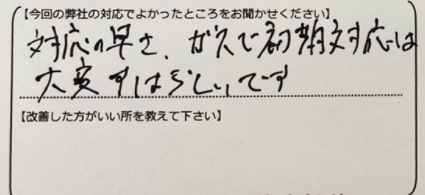 【今回の弊社の対応でよかったところをお聞かせください】
対応の早さ、ガスで初期対応は
大変すばらしいです
【改善した方がいい所を教えて下さい】